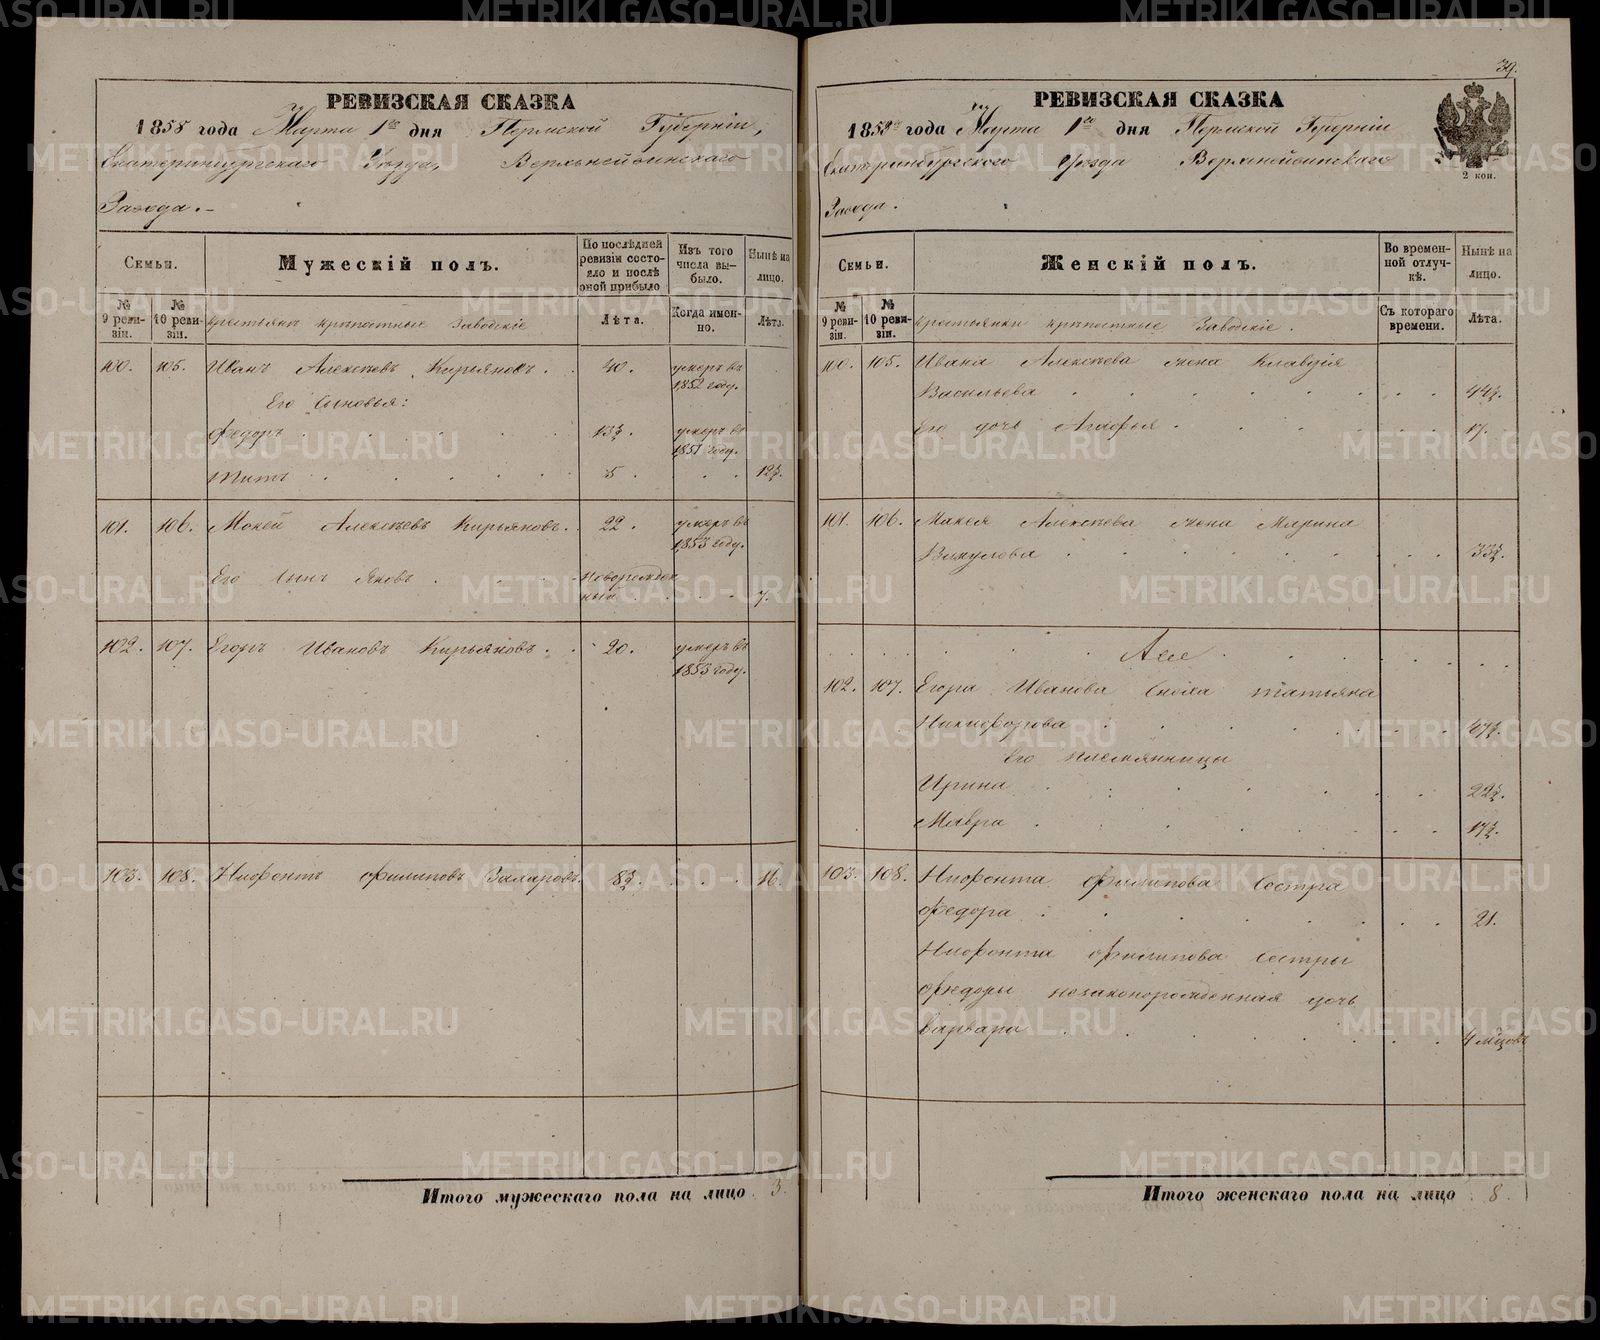 39.
РЕВИЗСКАЯ СКАЗКА
1858 года Марта 1го дня Пермской Губерніи,
Екатеринбургскаго Уѣзда, Верхнейвинскаго
Завода.
Семьи.
Мужескій полъ.
По послѣдней ревизіи состояло и послѣ оной прибыло
Изъ того числа выбыло.
Нынѣ на лицо.
№ 9 ревизіи.
№ 10 ревизіи.
Крестьянъ крѣпостные Заводскіе
Лѣта.
Когда именно.
Лѣта.
100. 105. Иванъ Алексѣевъ Кирьяновъ. 40. умеръ въ 1852 году.
Его Сыновья:
Федоръ 13½. умеръ въ 1851 году.
Титъ 5. 12½.
101. 106. Мокей Алексѣевъ Кирьяновъ. 22. умеръ въ 1853 году.
Его Сынъ Яковъ новорожденный 7.
102. 107. Егоръ Ивановъ Кирьяновъ. 20. умеръ въ 1853 году.
103. 108. Нифонтъ Филиповъ Захаровъ. 8½. 16.
Итого мужескаго пола на лицо 3.
РЕВИЗСКАЯ СКАЗКА
1858 года Марта 1го дня Пермской Губерніи
Екатеринбургскаго Уѣзда Верхнейвинскаго
Завода.
2 коп.
Семьи.
Женскій полъ.
Во временной отлучкѣ.
Нынѣ на лицо.
№ 9 ревизіи.
№ 10 ревизіи.
Крестьянки крѣпостные Заводскіе.
Съ котораго времени.
Лѣта.
100. 105. Ивана Алексѣева жена Клавдія
Васильева 44½.
Его дочь Агафья 17.
101. 106. Макея Алексѣева жена Марина
Викулова 33½.
102. 107. Егора Иванова Сноха Татьяна
Никифорова 47½.
Его племянницы
Ирина 22½.
Мавра 17½.
103. 108. Нифонта Филипова Сестра
Федора 21.
Нифонта Филипова Сестры
Федоры незаконорожденная дочь
Варвара 4 мѣсцовъ
Итого женскаго пола на лицо 8.
METRIKI.GASO-URAL.RU